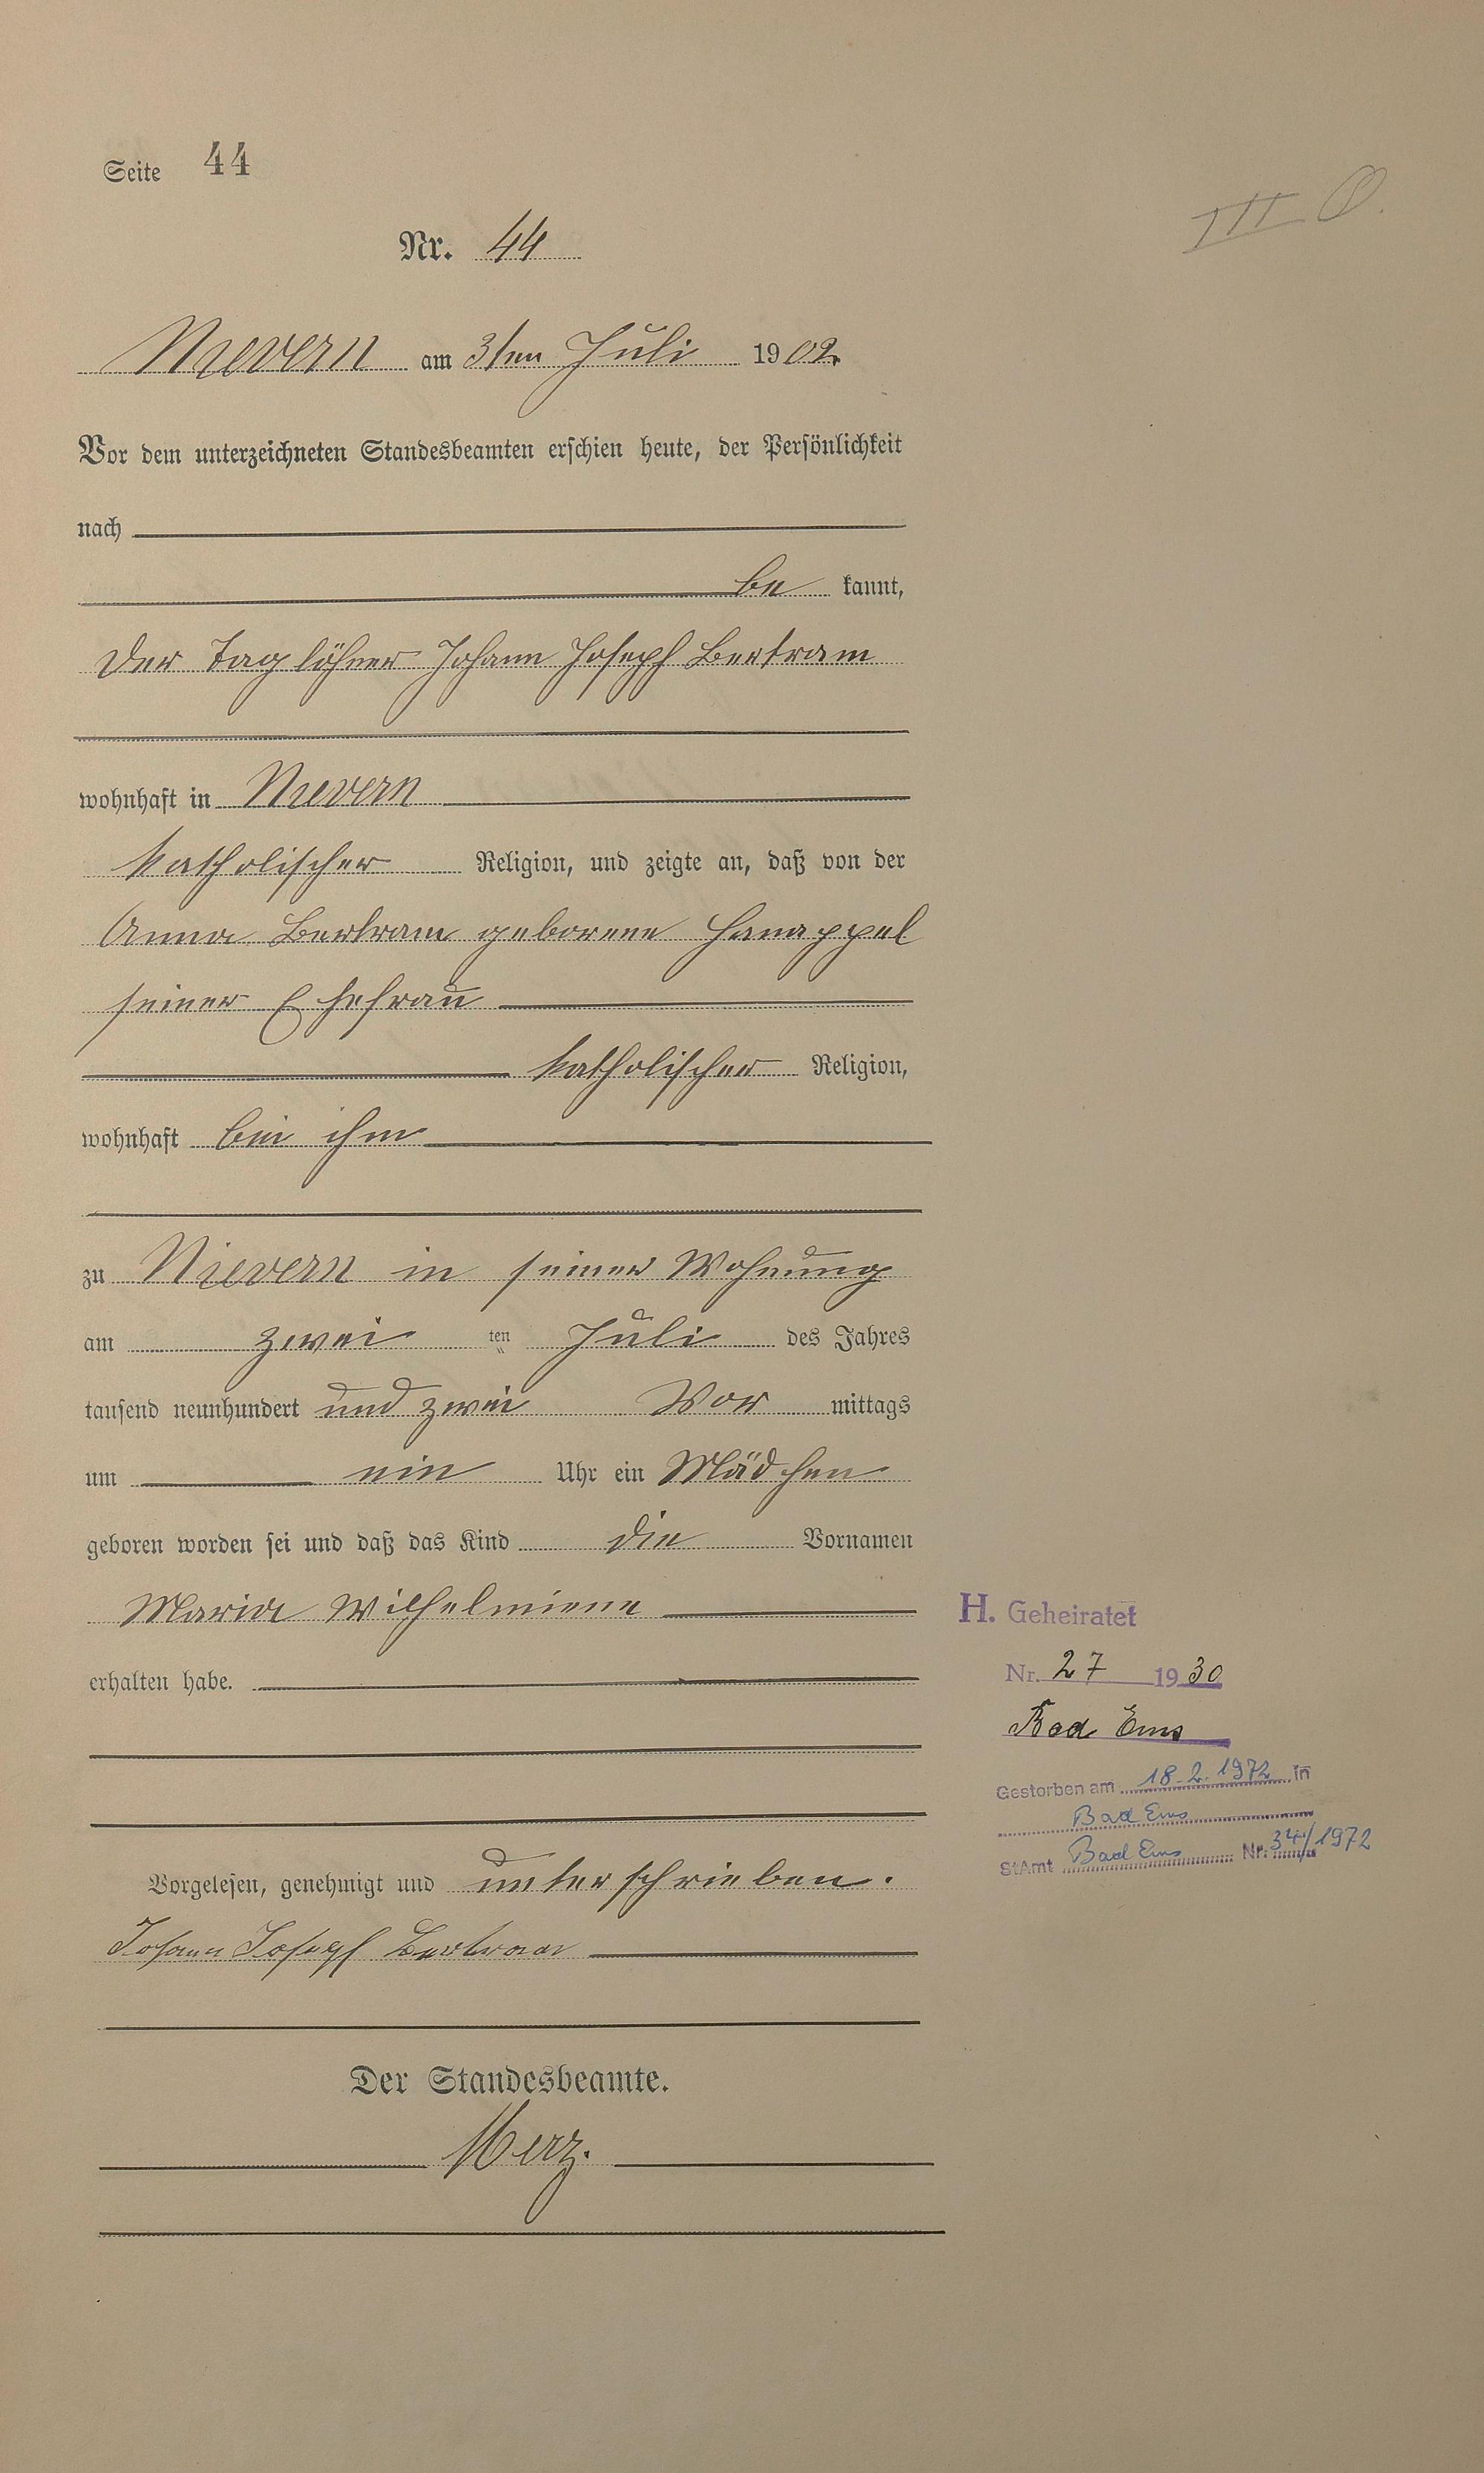 Seite 44
III O.
Nr. 44
Nievern am 3ten Juli 1902.
Vor dem unterzeichneten Standesbeamten erschien heute, der Persönlichkeit
nach
be kannt,
der Taglöhner Johann Joseph Bertram
wohnhaft in Nievern
katholischer Religion, und zeigte an, daß von der
Anna Bertram geborene Hanappel
seiner Ehefrau
katholischer Religion,
wohnhaft bei ihm
zu Nievern in seiner Wohnung
am zwei ten Juli des Jahres
tausend neunhundert und zwei Vor mittags
um ein Uhr ein Mädchen
geboren worden sei und daß das Kind die Vornamen
Maria Wilhelmiene
erhalten habe.
H. Geheiratet
Nr. 27 1930
Bad Ems
Gestorben am 18.2.1972 in
Bad Ems
StAmt Bad Ems Nr. 34/1972
Vorgelesen, genehmigt und unterschrieben.
Johann Joseph Bertram
Der Standesbeamte.
Merz.